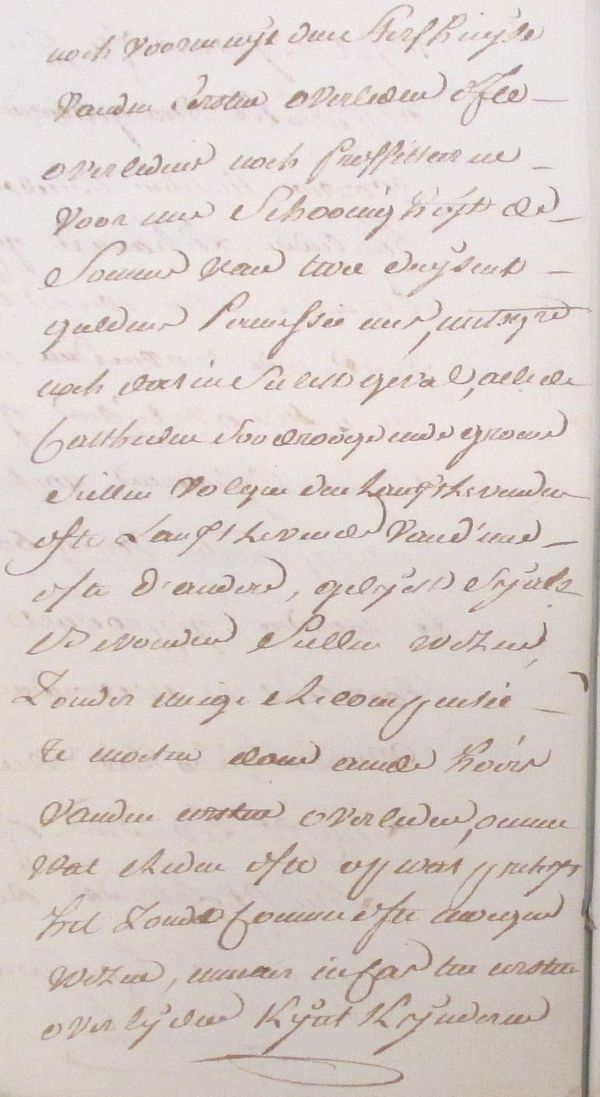 noch voornemijt den Sterfhuijse
vanden Eersten overleden ofte
overledene noch proffiteren
voor eene Schooving kost de
Somme van twee duijsent
guldens permissie eens, mitsgrs
noch dat in Sulcken geval, alle de
Catheilen Soo drooge ende groene
Sullen volgen den Langstlevenden
ofte Langstlevende van d'eene
ofte d'andere, gelijck Sij als
bevonden Sullen wesen,
Zonder eenige Recompensie
te moeten doen aende Hoirs
vanden eersten overleden, omme
wat Reden ofte op wat pretext
het Zoude Connen ofte mogen
wesen, maer in cas ten eersten
overlijden kijnt kijnderen